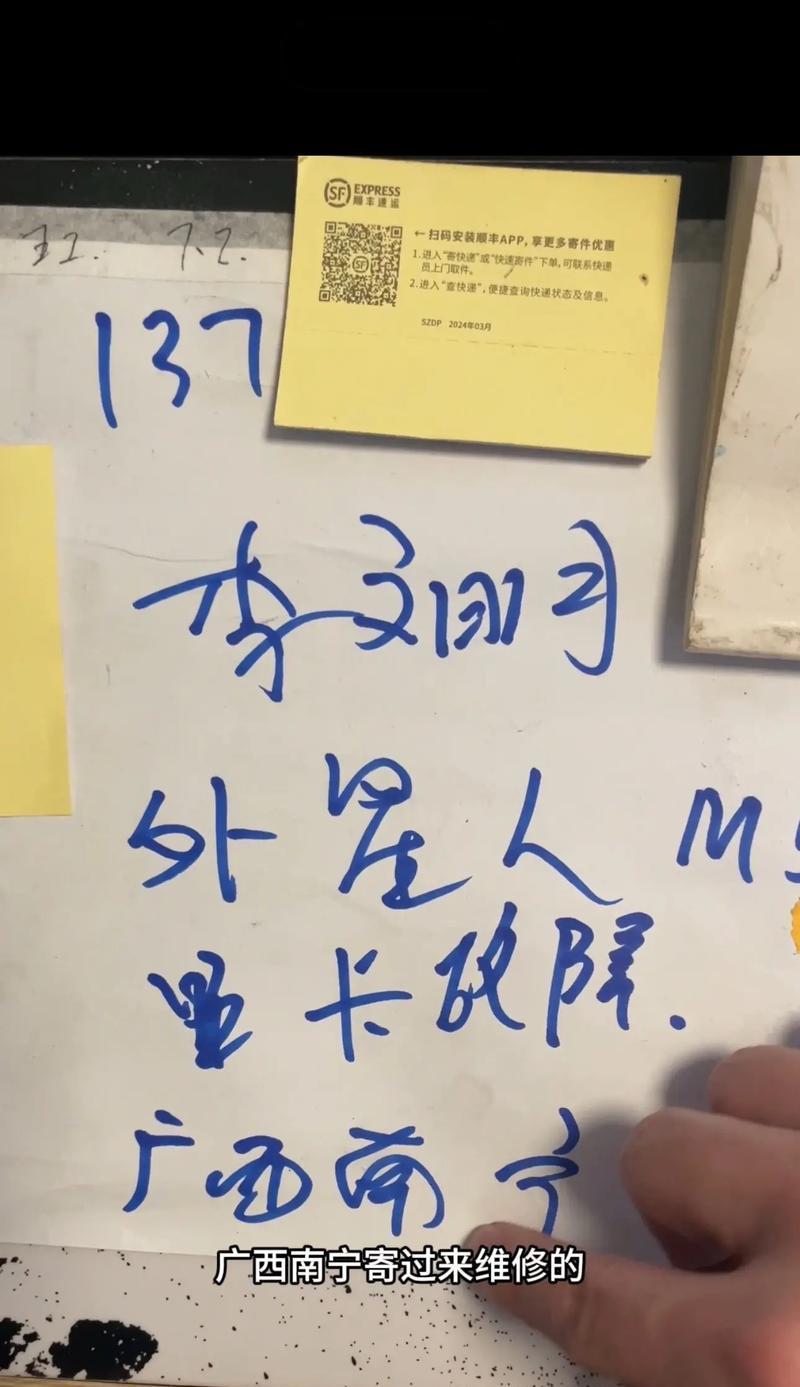 SF EXPRESS
顺丰速运
←扫码安装顺丰APP,享更多寄件优惠
1.进入"寄快递"或"快速寄件"下单,可联系快递
员上门取件。
2.进入"查快递",便捷查询快递状态及信息。
SZDP 2024年03月
137
李文
外星人 M
显卡故障.
广西南宁
广西南宁寄过来维修的